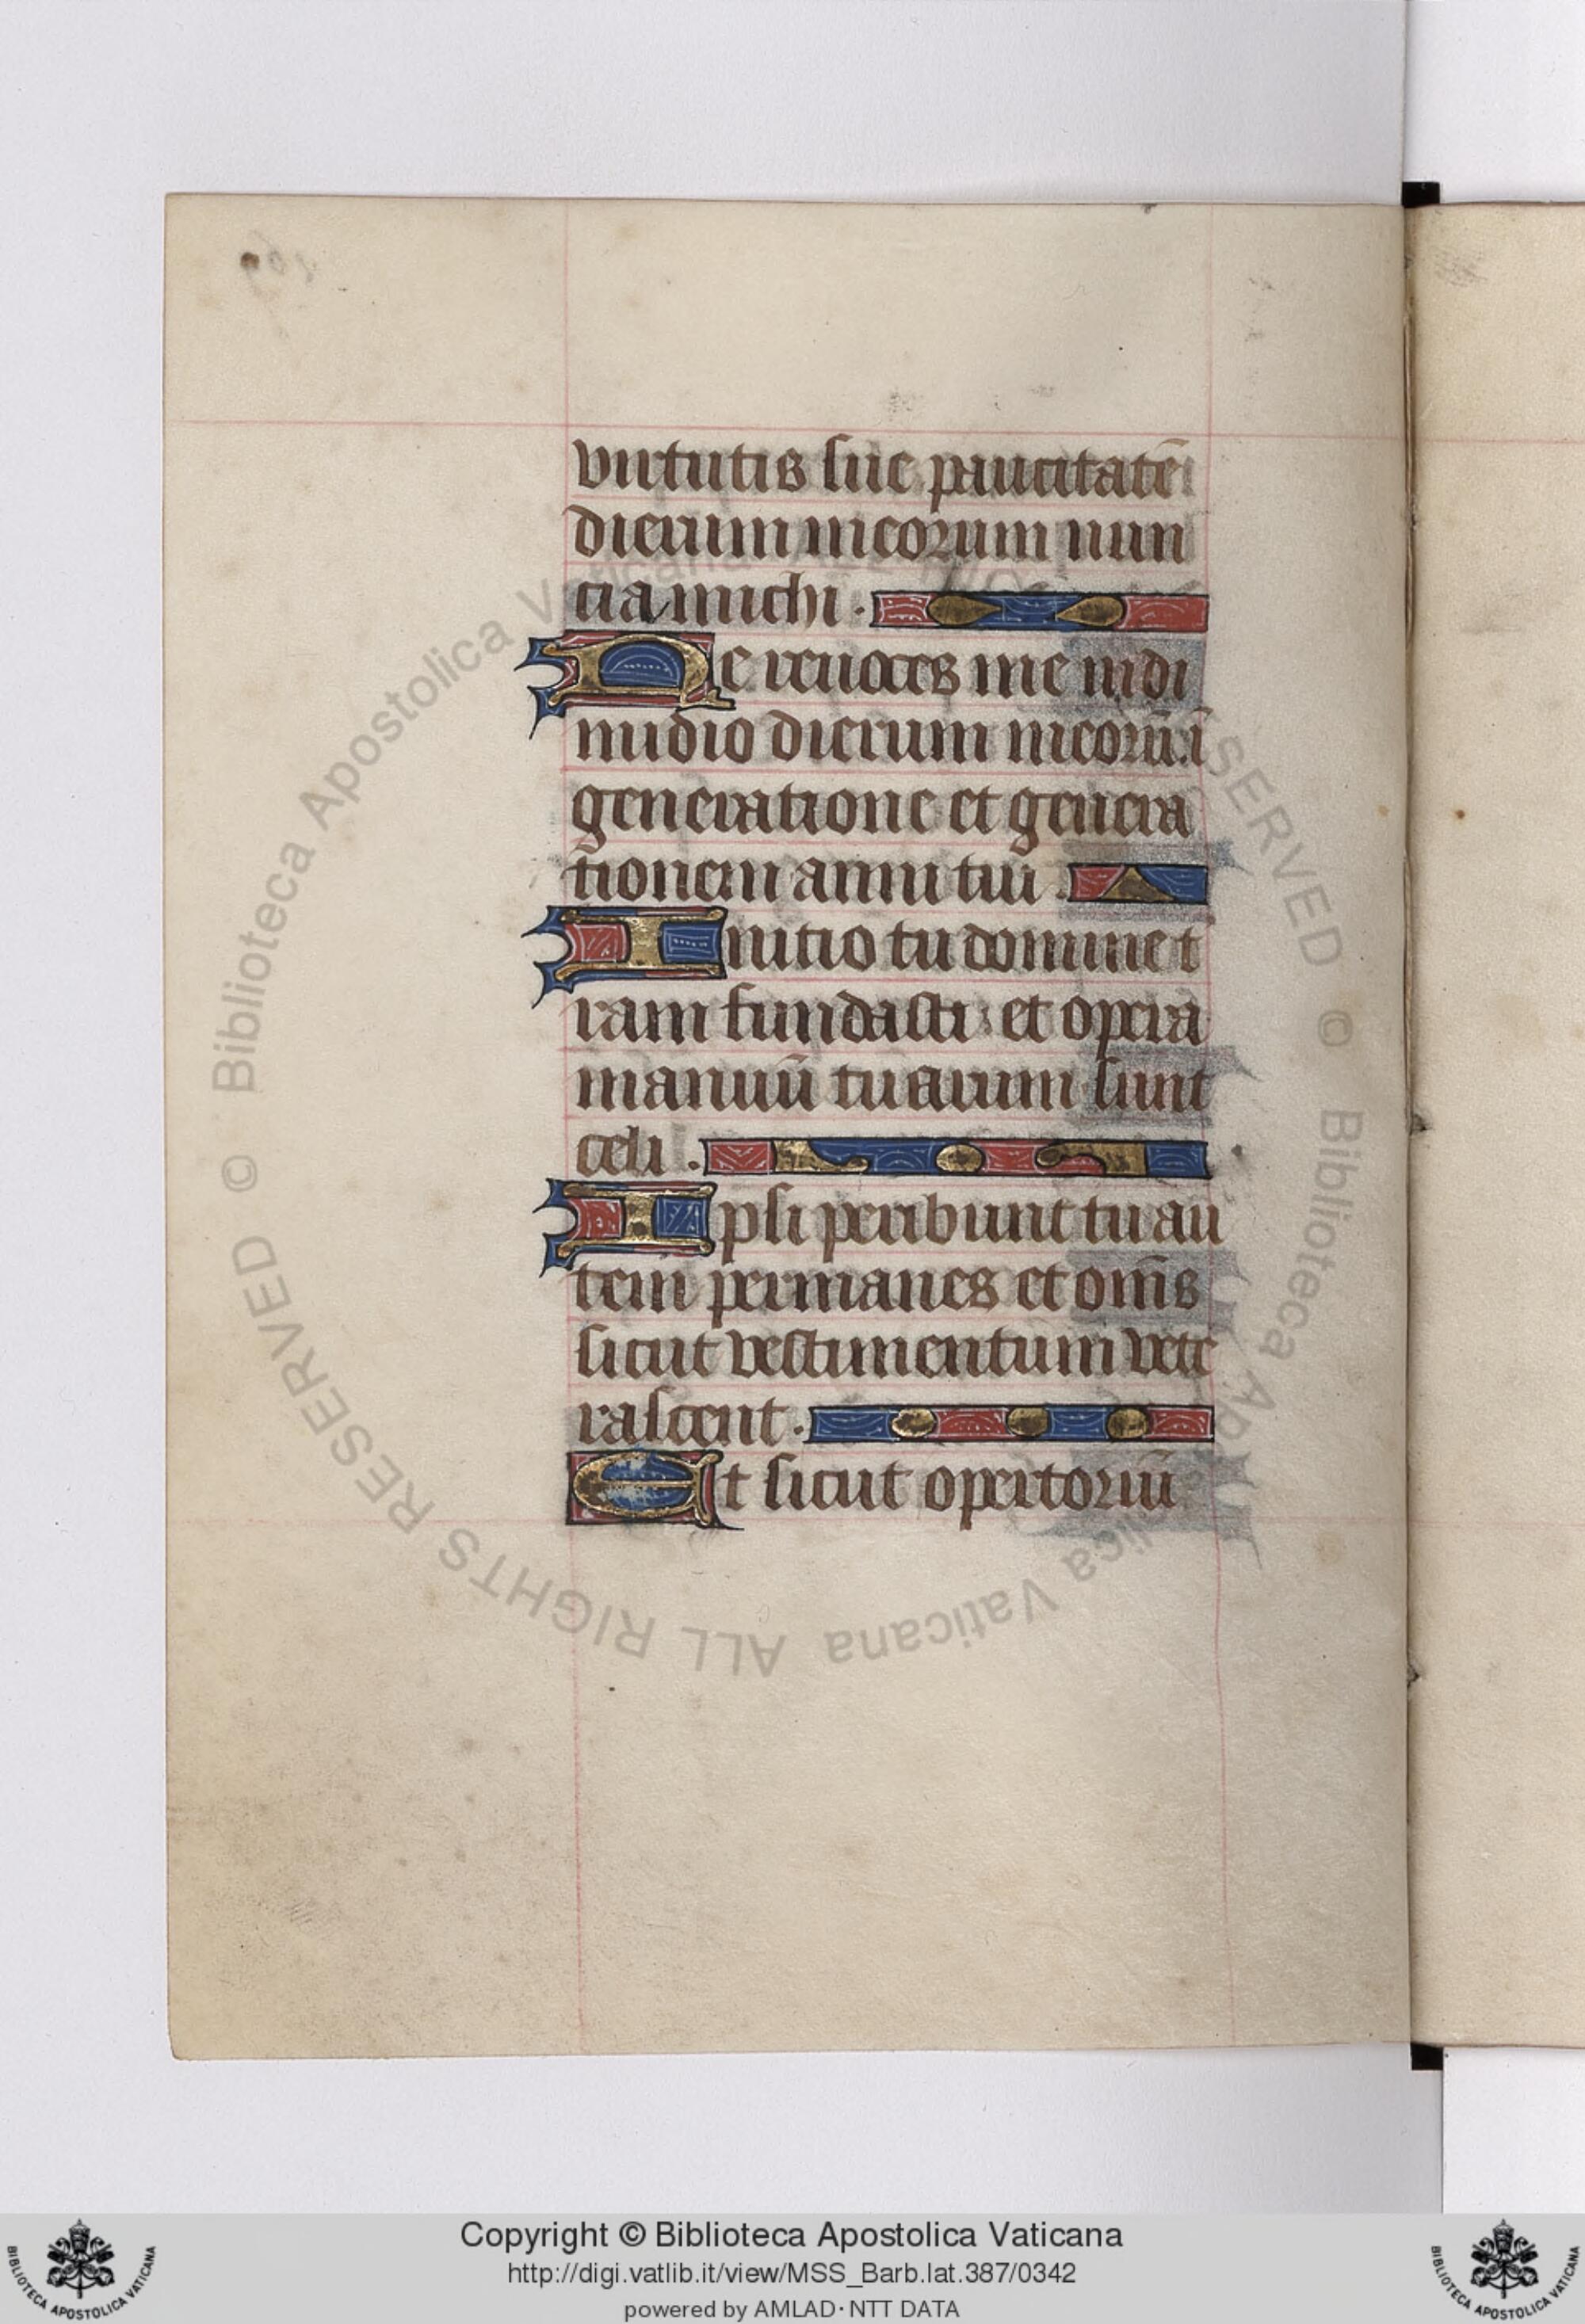 virtutis sue paucitatē
dierum meorum nun
cia michi.
Ne reuoces me in di
midio dierum meorū: ī
generatione et genera
tionem anni tui.
Initio tu domine t
ram fundasti: et opera
manuū tuarum sunt
celi.
Ipsi peribunt tu au
tem permanes et om̄s
sicut vestimentum vete
rascent.
Et sicut opertoriū
© Biblioteca Apostolica Vaticana ALL RIGHTS RESERVED
© Biblioteca Apostolica Vaticana ALL RIGHTS RESERVED
Copyright © Biblioteca Apostolica Vaticana
http://digi.vatlib.it/view/MSS_Barb.lat.387/0342
powered by AMLAD·NTT DATA
BIBLIOTECA APOSTOLICA VATICANA
BIBLIOTECA APOSTOLICA VATICANA